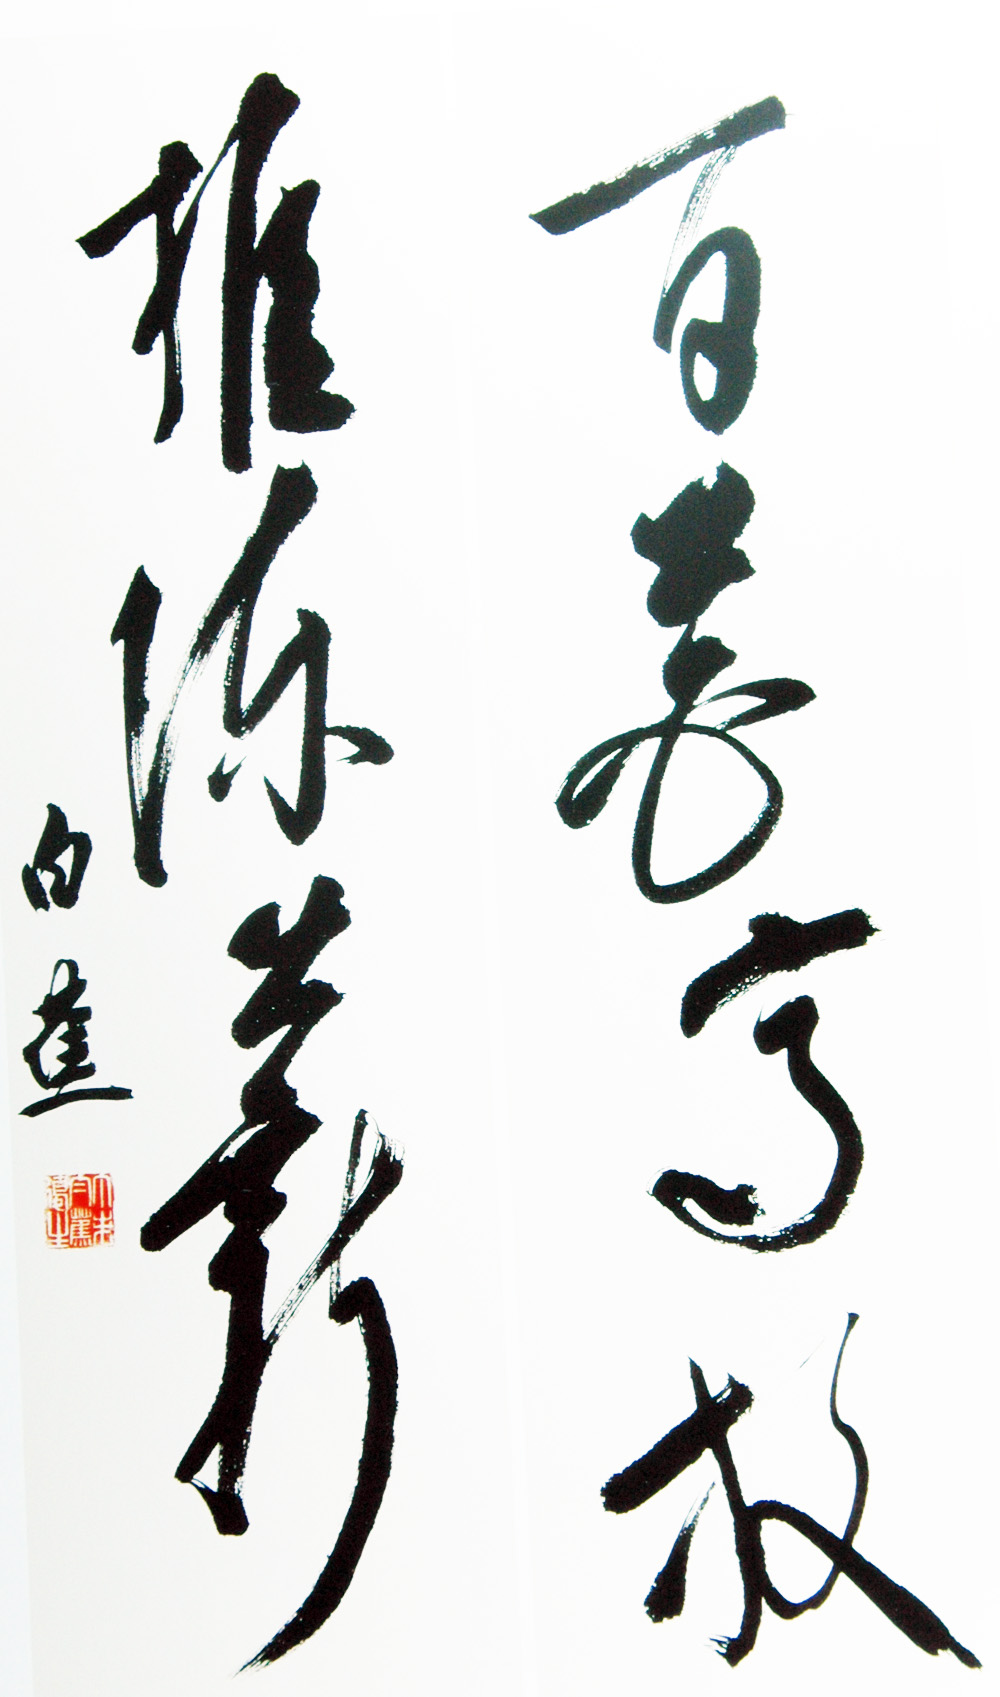 百花齐放
推陈出新
白蕉